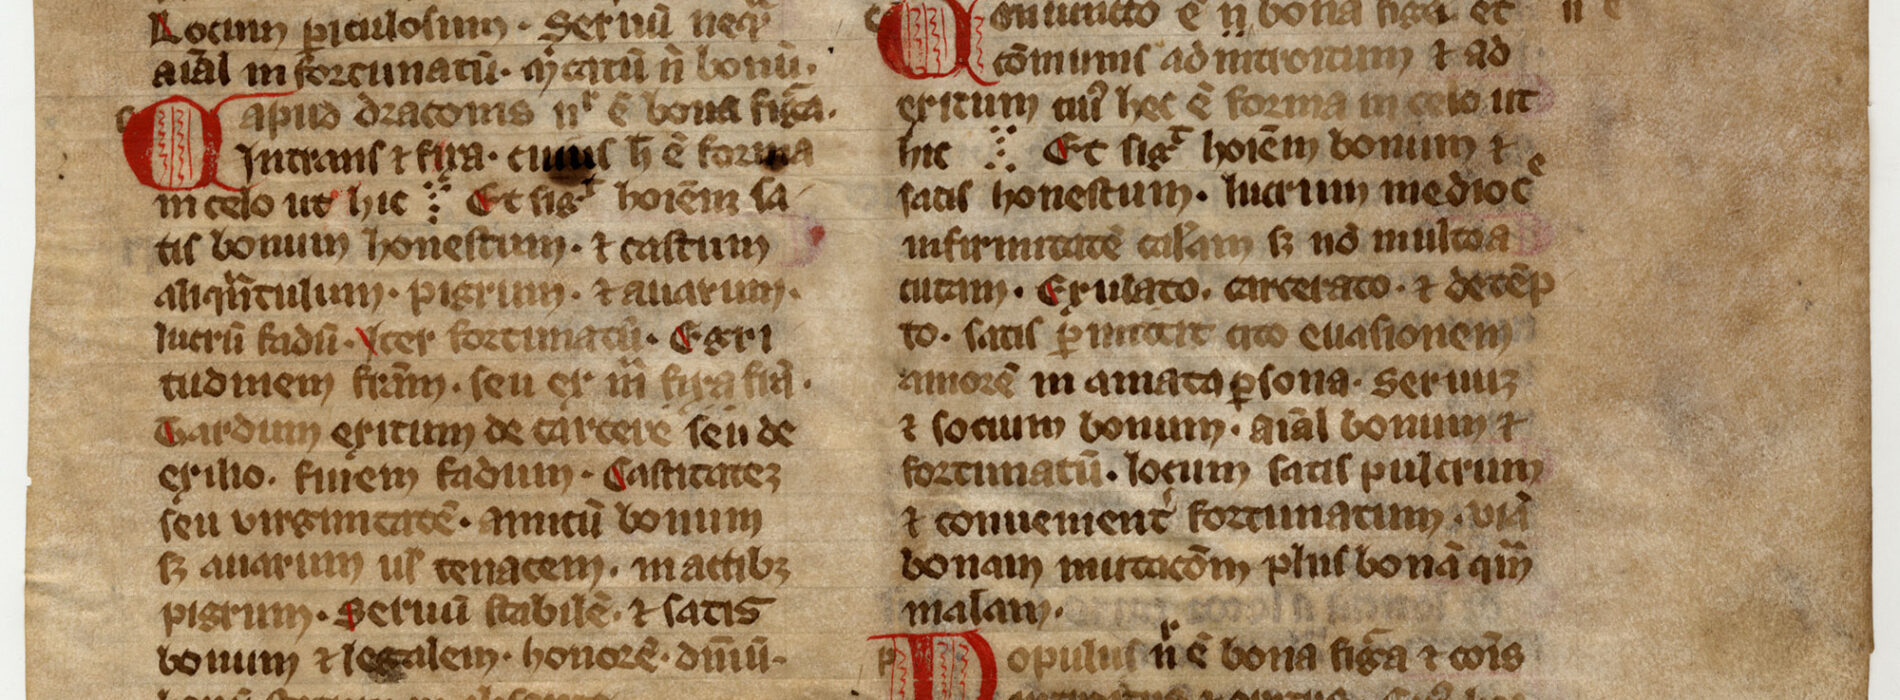 Locum piculosum. Seruū neqᵃ
aīal infortunatū. mcatū n̄ bonū.
Caput draconis nʳ ē bona fiḡa.
Intrans ⁊ fixa. cuius h̄ ē forma
in celo ut hic Et sigᵗ hoiēm sa
tis bonum honestum. ⁊ castum
aliqn̄tulum. pigrum. ⁊ auarum.
lucrū tadū. Iter fortunatū. Egri
tudinem firām. seu ex m̄ fixa firā.
Tardum exitum de carcere seu de
exilio. finem tadium. Castitatez
seu virginitatē. amicū bonum
sꝫ auarum ul' tenacem. in actibꝫ
pigrum. Seruū stabilē. ⁊ satis
bonum ⁊ legalem. honorē. dn̄iū.
Coniunctio ē n̄ bona figᵃ et
cōmunis ad introitum ⁊ ad
exitum cui' hec ē forma in celo ut
hic Et sigᵗ hoiēm bonum ⁊
satis honestum. lucrum medioc̄ᵉ
infirmitatē sꝫ nō multoa
cutam. Exulato. carcerato. ⁊ detēp
to. satis ꝓmittit cito euasionem
amorē in amata ꝑsona. Seruuꝫ
⁊ socium bonum. aīal bonum ⁊
fortunatū. locum satis pulcrum
⁊ conuenient' fortunatum. uiā
bonam mutacōm plus bonā qm̄
malam.
Populus nʳ ē bona fiḡa ⁊ cōis